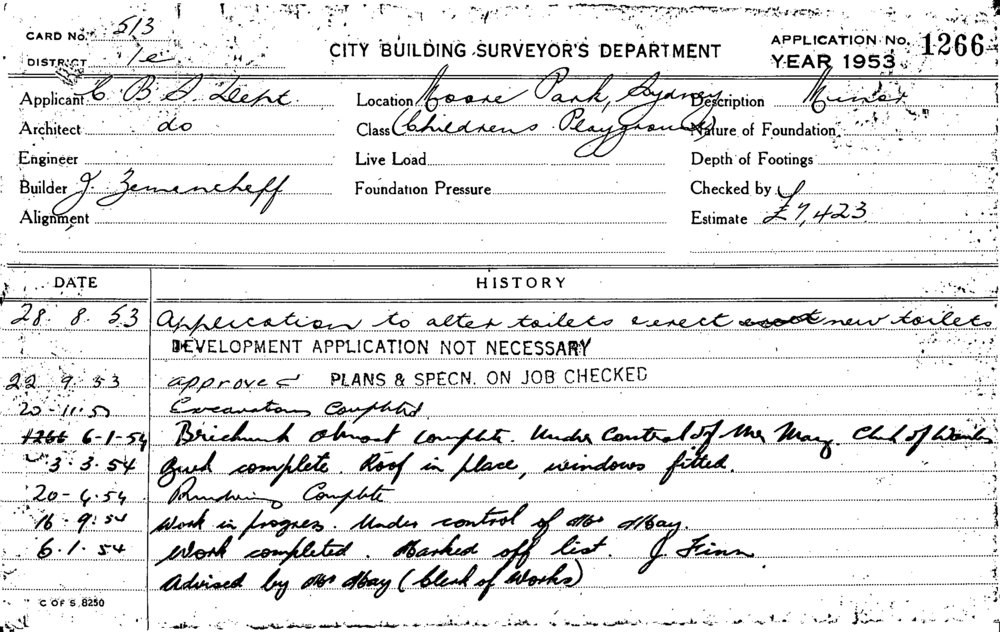 CARD No. 513
DISTRICT 1e
CITY BUILDING SURVEYOR'S DEPARTMENT
APPLICATION No. 1266
YEAR 1953
Applicant C B S Dept.
Location Moore Park, Sydney
Description Minor
Architect do
Class (Childrens Playground)
Nature of Foundation
Engineer
Live Load
Depth of Footings
Builder J. Zemancheff
Foundation Pressure
Checked by
Alignment
Estimate £7,423
DATE HISTORY
28. 8. 53 Application to alter toilets & erect new toilets
DEVELOPMENT APPLICATION NOT NECESSARY
22 9. 53 approved PLANS & SPECN. ON JOB CHECKED
20-11-53 Excavations Completed
1266 6-1-54 Brickwork almost complete. Under Control of Mr May. Clerk of Works
3. 3. 54 Brick complete. Roof in place, windows fitted.
20-4-54 Complete
16-9-54 Work in progress. Under control of Mr May.
6. 1. 54 Work completed. Marked off list. J Finn
Advised by Mr May (Clerk of Works)
C OF S 8250